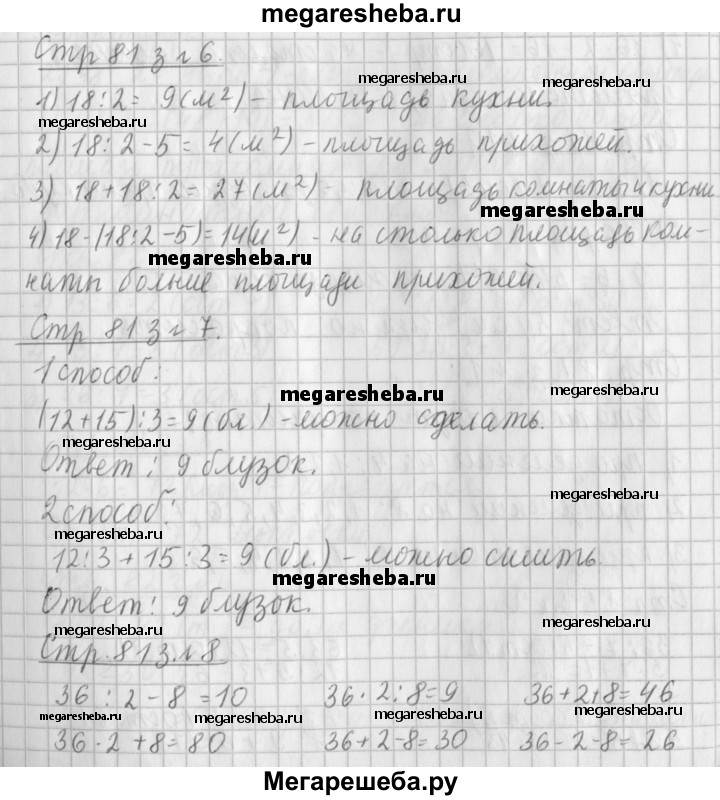 megaresheba.ru
Стр 81 з г 6.
megaresheba.ru
1) 18:2= 9(м²) - площадь кухни.
megaresheba.ru
2) 18:2-5=4(м²) - площадь прихожей.
3) 18+18:2=27(м²) - площадь комнаты и кухни
megaresheba.ru
4) 18-(18:2-5)=14(м²) - на столько площадь ком-
megaresheba.ru
наты больше площади прихожей.
Стр 81 з г 7.
1 способ:
megaresheba.ru
megaresheba.ru
(12+15):3=9(бл) - можно сделать.
megaresheba.ru
Ответ: 9 блузок.
megaresheba.ru
2 способ:
megaresheba.ru
12:3+15:3=9(бл.) - можно сшить.
megaresheba.ru
Ответ: 9 блузок.
megaresheba.ru
megaresheba.ru
Стр. 81 з. г 8
36:2-8=10 36·2:8=9 36+2+8=46
megaresheba.ru megaresheba.ru megaresheba.ru megaresheba.ru
36·2+8=80 36+2-8=30 36-2-8=26
Мегарешеба.ру